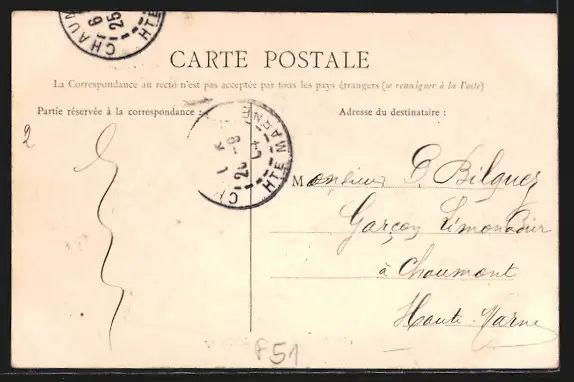 CHAUM
6
25
HTE
CARTE POSTALE
La Correspondance au recto n'est pas acceptée par tous les pays étrangers (se renseigner à la Poste)
Partie réservée à la correspondance :
Adresse du destinataire :
2
HTE MARNE
Monsieur C. Bilquez
Garçon Limonadier
à Chaumont
Haute-Marne
F51